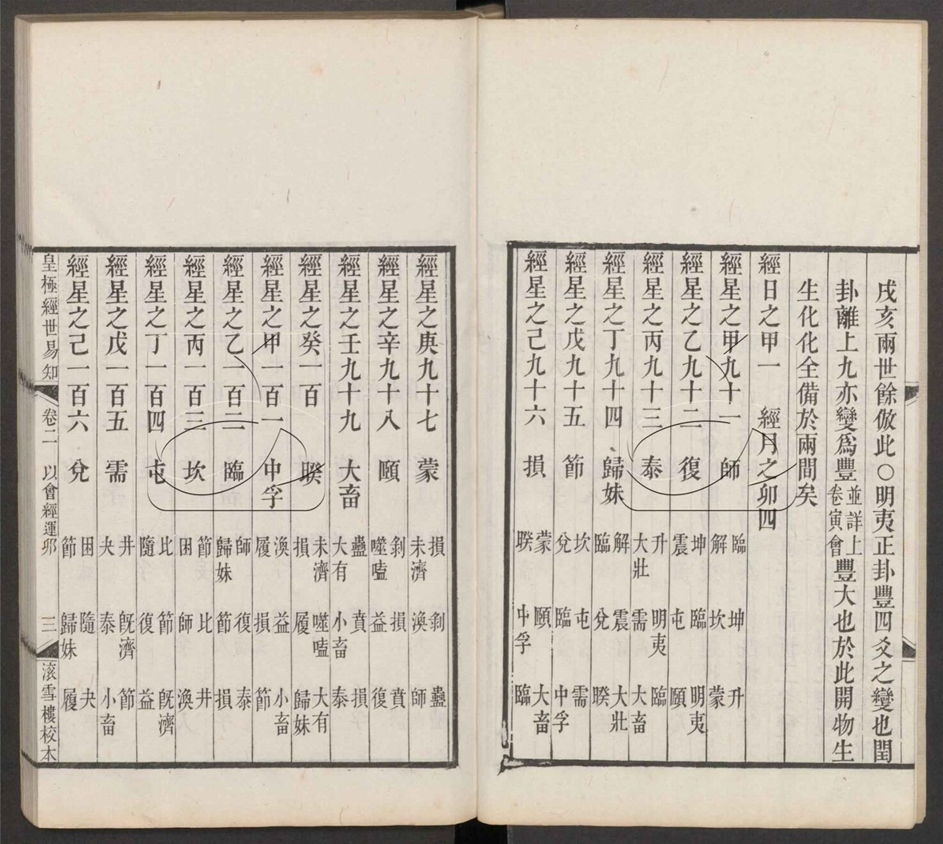 戌亥兩世餘倣此○明夷正卦豐四爻之變也閏
卦離上九亦變爲豐並詳上卷寅會豐大也於此開物生
生化化全備於兩間矣
經日之甲一 經月之卯四
經星之甲九十一 師 臨 坤 升 解 坎 蒙
經星之乙九十二 復 坤 臨 明夷 震 屯 頤
經星之丙九十三 泰 升 明夷 臨 大壯 需 大畜
經星之丁九十四 歸妹 解 震 大壯 臨 兌 睽
經星之戊九十五 節 坎 屯 需 兌 臨 中孚
經星之己九十六 損 蒙 頤 大畜 睽 中孚 臨
經星之庚九十七 蒙 損 剝 蠱 未濟 渙 師
經星之辛九十八 頤 剝 損 賁 噬嗑 益 復
經星之壬九十九 大畜 蠱 賁 損 大有 小畜 泰
經星之癸一百 睽 未濟 噬嗑 大有 損 履 歸妹
經星之甲一百一 中孚 渙 益 小畜 履 損 節
經星之乙一百二 臨 師 復 泰 歸妹 節 損
經星之丙一百三 坎 節 比 井 困 師 渙
經星之丁一百四 屯 比 節 旣濟 隨 復 益
經星之戊一百五 需 井 旣濟 節 夬 泰 小畜
經星之己一百六 兌 困 隨 夬 節 歸妹 履
皇極經世易知 卷二 以會經運卯 三 滾雪樓校本